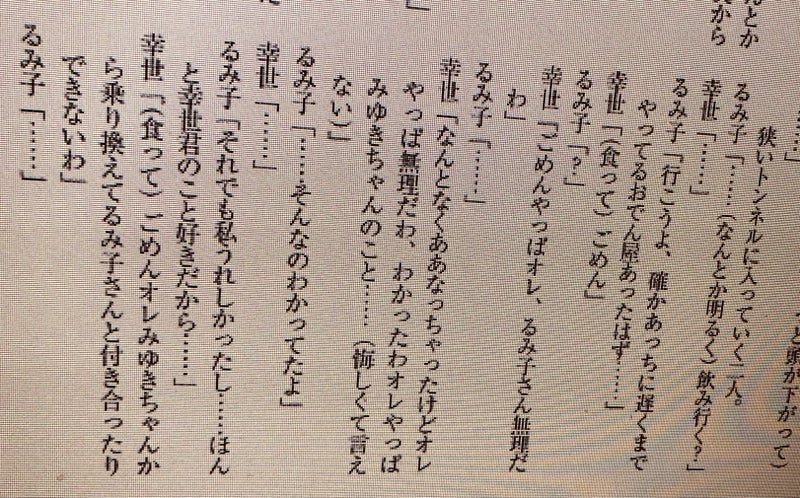 んとか
後から
……」
と頭が下がって）
狭いトンネルに入っていく二人。
るみ子「……（なんとか明るく）飲み行く？」
幸世「……」
るみ子「行こうよ、確かあっちに遅くまで
やってるおでん屋あったはず……」
幸世「（食って）ごめん」
るみ子「？」
幸世「ごめんやっぱオレ、るみ子さん無理だ
わ」
るみ子「……」
幸世「なんとなくああなっちゃったけどオレ
やっぱ無理だわ、わかったわオレやっぱ
みゆきちゃんのこと……（悔しくて言え
ない）」
るみ子「……そんなのわかってたよ」
幸世「……」
るみ子「それでも私うれしかったし……ほん
と幸世君のこと好きだから……」
幸世「（食って）ごめんオレみゆきちゃんか
ら乗り換えてるみ子さんと付き合ったり
できないわ」
るみ子「……」